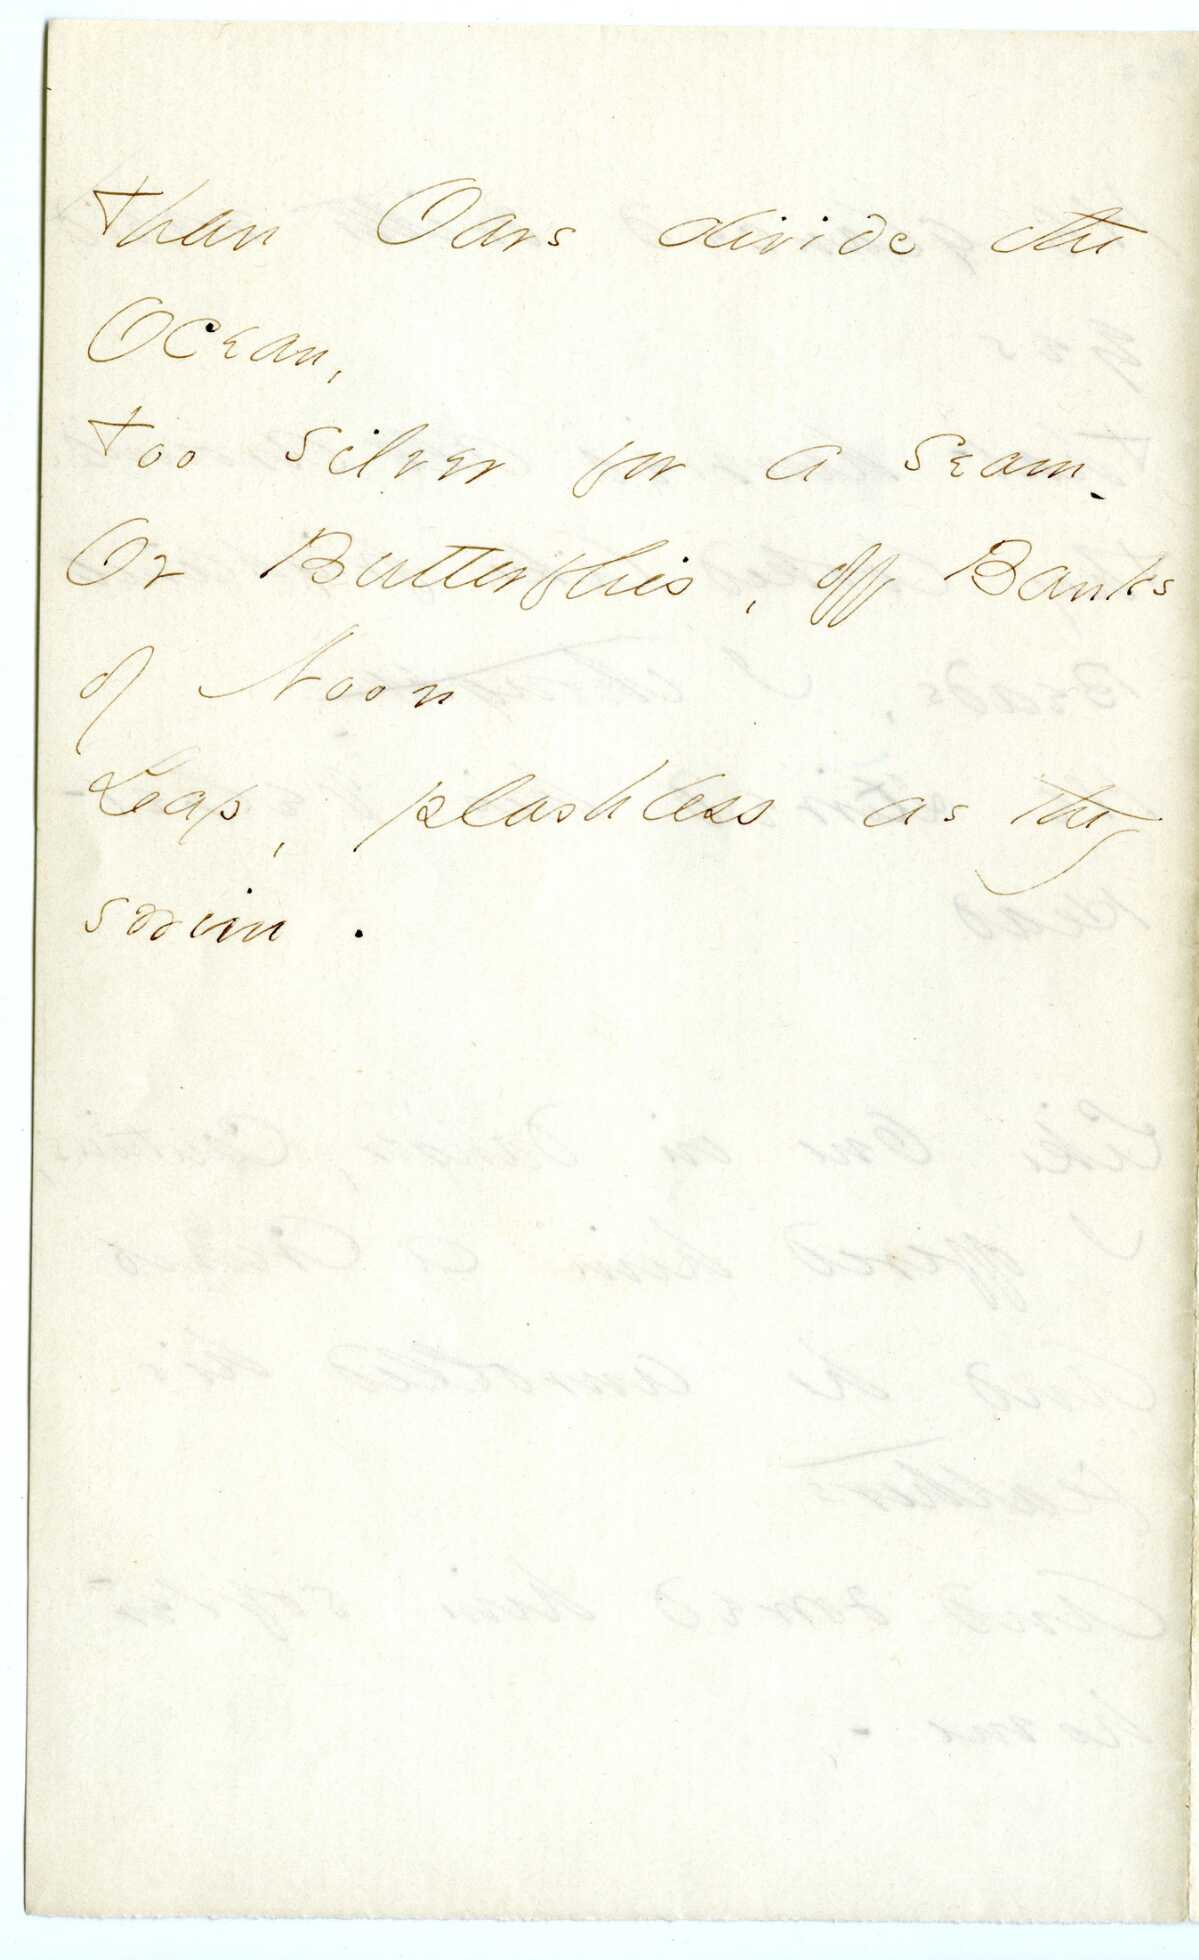 than Oars divide the
Ocean,
too silver for a seam.
Or Butterflies, off Banks
of Noon
Leap, plashless as they
swim.